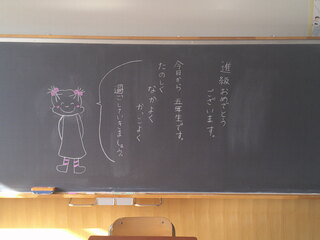 進級おめでとう
ございます。
今日から 五年生です。
たのしく
なかよく
かっこよく
過ごしていきましょう